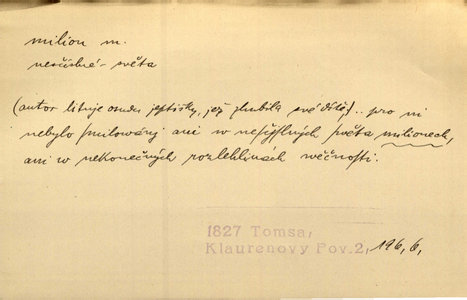 milion m.
nesčíslné - světa
(autor lituje osudu jeptišky, jež zhubila své dítě) .. pro ni
nebylo smilování ani w nesčíslných světa milionech,
ani w nekonečných rozlehlinách wěčnosti.
1827 Tomsa,
Klaurenovy Pov. 2, 196, 6,